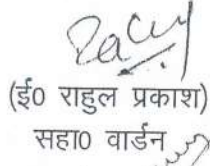 (ई० राहुल प्रकाश)
सहा० वार्डन